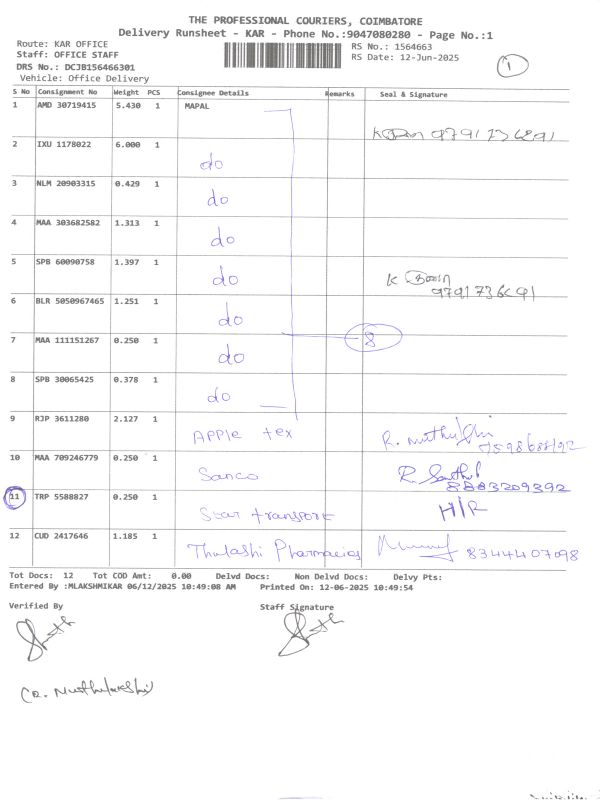 THE PROFESSIONAL COURIERS, COIMBATORE
Delivery Runsheet - KAR - Phone No.:9047080280 - Page No.:1
Route: KAR OFFICE
RS No.: 1564663
Staff: OFFICE STAFF
RS Date: 12-Jun-2025
1
DRS No.: DCJB156466301
Vehicle: Office Delivery
S No Consignment No Weight PCS Consignee Details Remarks Seal & Signature
1 AMD 30719415 5.430 1 MAPAL
2 IXU 1178022 6.000 1 do
3 NLM 20903315 0.429 1 do
4 MAA 303682582 1.313 1 do
5 SPB 60090758 1.397 1 do
6 BLR 5050967465 1.251 1 do
7 MAA 111151267 0.250 1 do 8
8 SPB 30065425 0.378 1 do
9 RJP 3611280 2.127 1 Apple tex
10 MAA 709246779 0.250 1 Sanco
8883209392
11 TRP 5588827 0.250 1 Star transport H/R
12 CUD 2417646 1.185 1 Thulashi Pharmacies 8344407098
Tot Docs: 12 Tot COD Amt: 0.00 Delvd Docs: Non Delvd Docs: Delvy Pts:
Entered By :MLAKSHMIKAR 06/12/2025 10:49:08 AM Printed On: 12-06-2025 10:49:54
Verified By Staff Signature